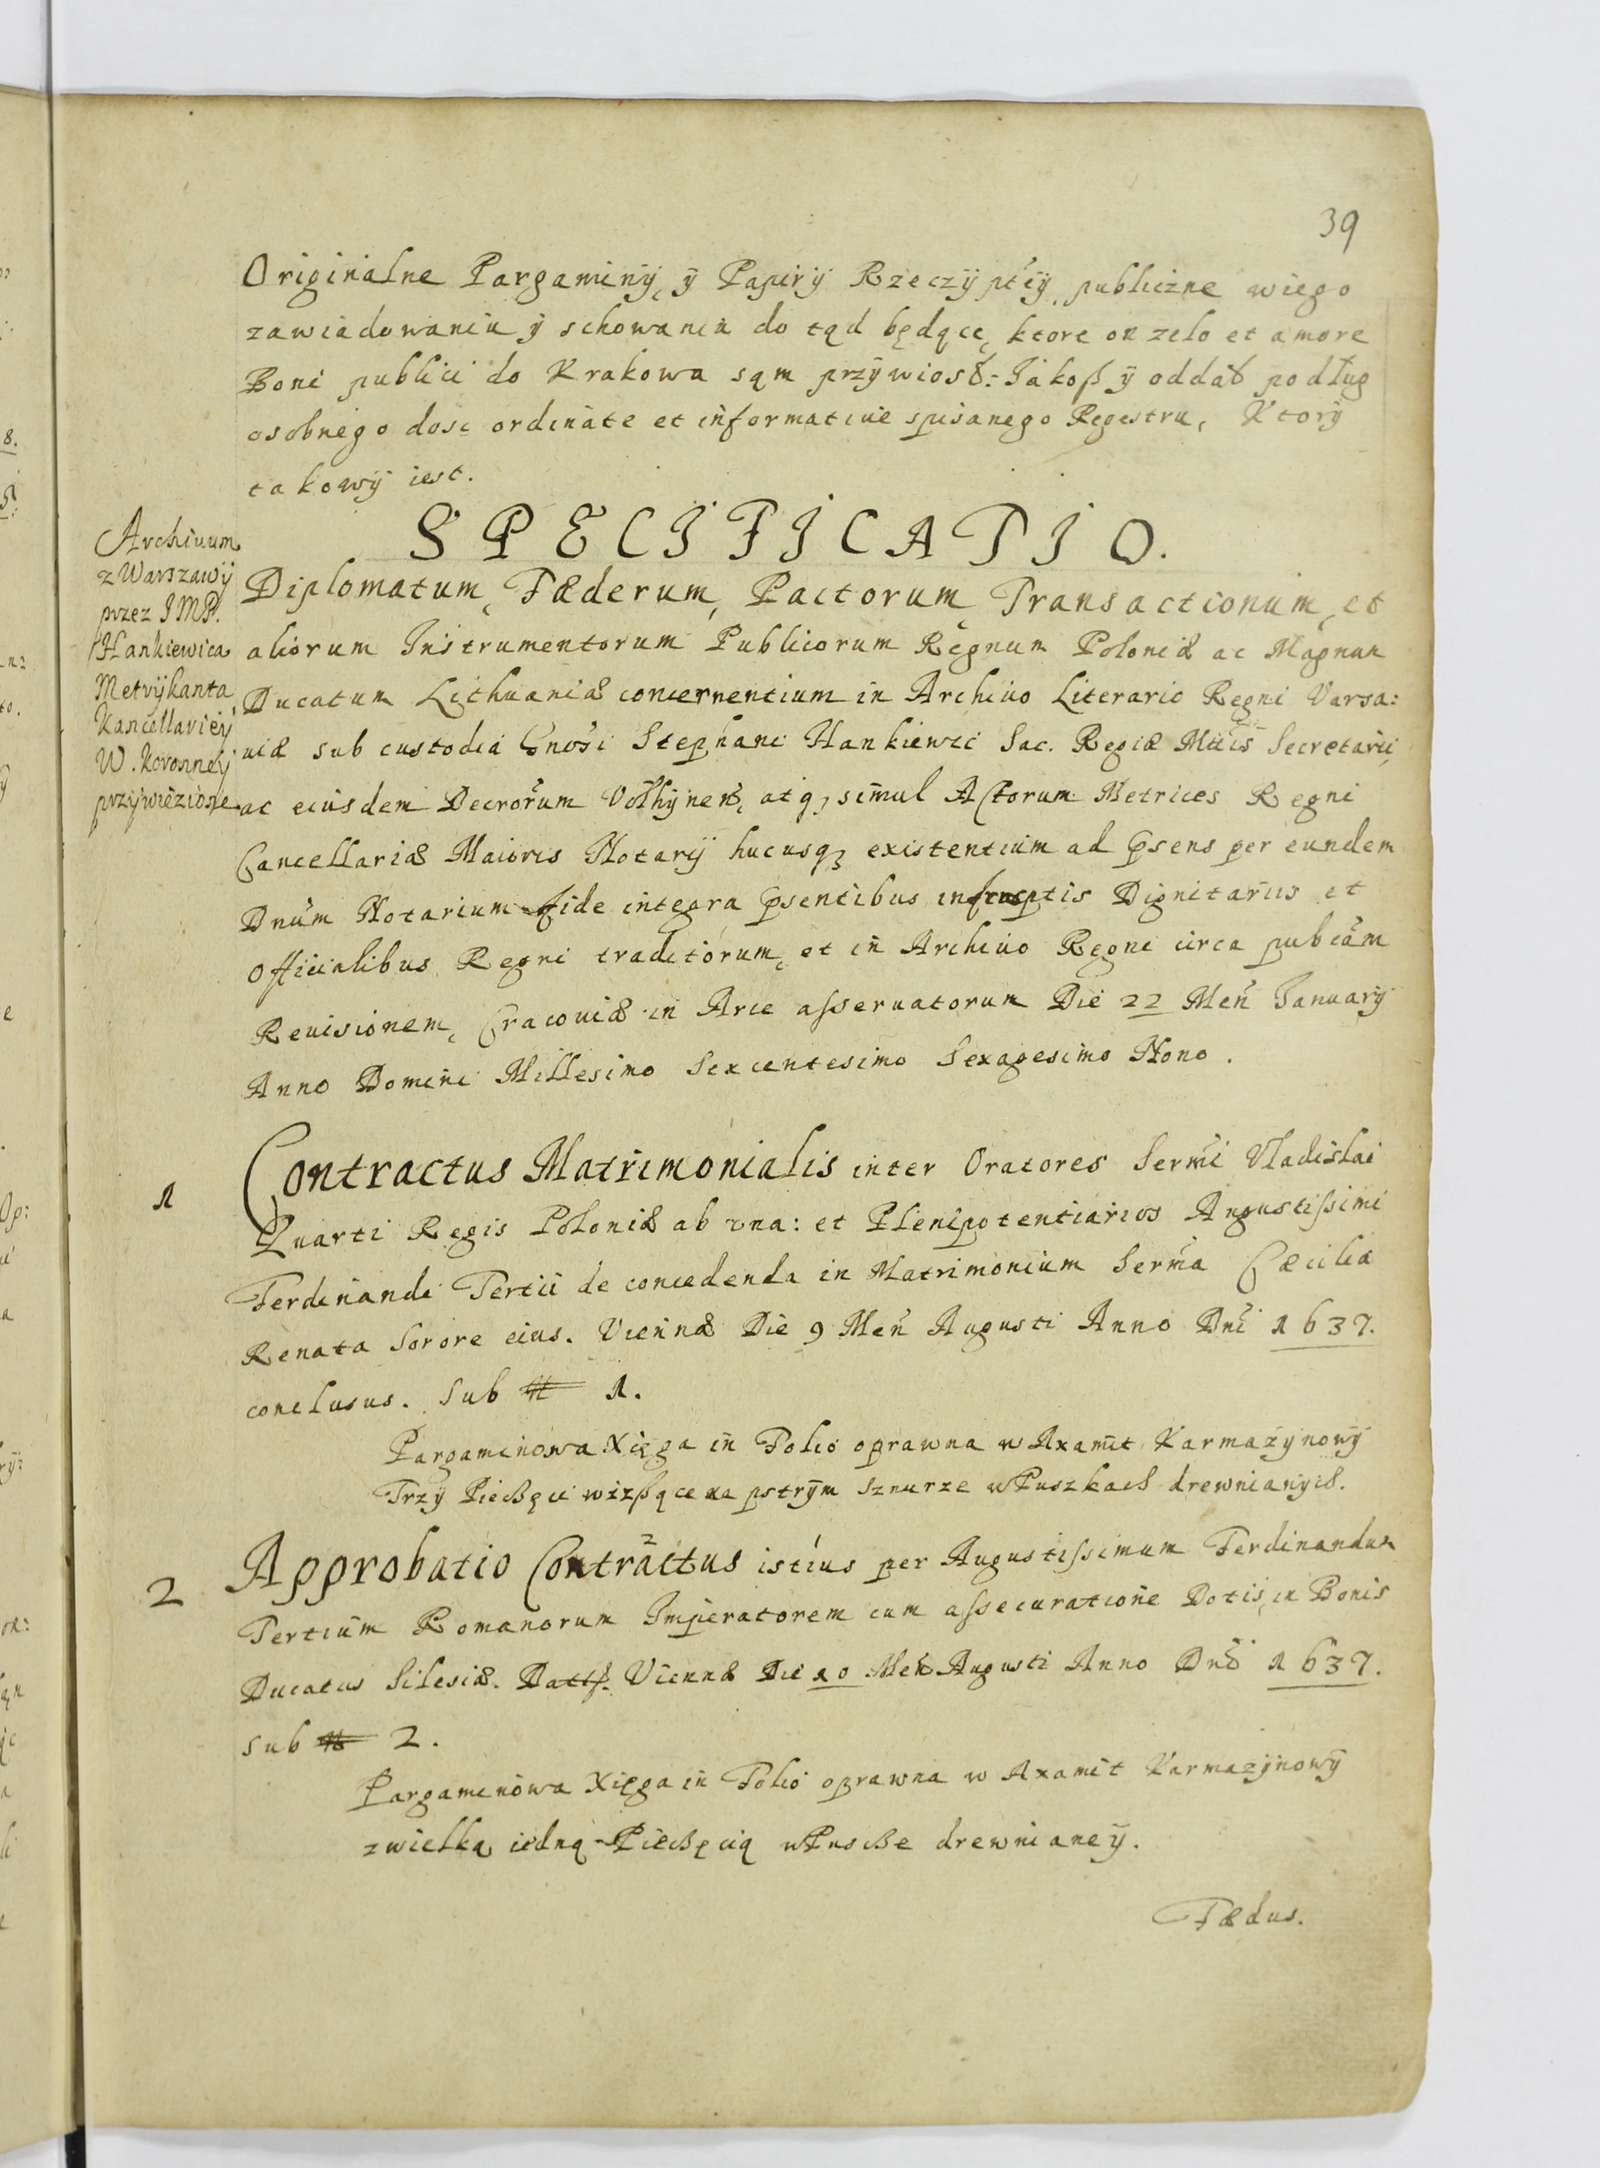 39
Originalne Pargaminÿ, ÿ Papirÿ Rzeczÿ ptÿ publiczne wiego
zawiadowaniu ÿ schowaniu do tąd będące, ktore on zelo et amore
Boni publici do Krakowa sąm przÿwiosł: Jakoß ÿ oddał podług
osobnego dosc ordinate et informative spisanego Regestru, Ktorÿ
takowÿ iest.
SPECIFICATIO.
Archiuum
z Warszawÿ
przez JMP.
Hankiewica
Metrÿkanta
Kancellarieÿ
W. Koronneÿ
przÿwiezione
Diplomatum, Fæderum, Pactorum Transactionum, et
aliorum Instrumentorum Publicorum Regnum Poloniæ ac Magnum
Ducatum Lithuaniæ concernentium in Archiuo Literario Regni Varsa:
uiæ sub custodia Gnosi Stephani Hankiewic Sac. Regiæ Mttis Secretarii,
ac eiusdem Decrorum Volhÿnen, atq3 simul Actorum Metrices Regni
Cancellariæ Maioris Notarÿ hucusq3 existentium ad psens per eundem
Dnum Notarium fide integra psentibus infrascptis Dignitariis et
Officialibus Regni traditorum, et in Archiuo Regni circa pubcam
Reuisionem, Cracouiæ in Arce asseruatorum Die 22 Men Januarÿ
Anno Domini Millesimo Sexcentesimo Sexagesimo Nono.
1 Contractus Matrimonialis inter Oratores Sermi Vladislai
Quarti Regis Poloniæ ab vna: et Plenipotentiarios Augustissimi
Ferdinandi Tertii de concedenda in Matrimonium Serma Cæcilia
Renata Sorore eius. Viennæ Die 9 Men Augusti Anno Dni 1637.
conclusus. Sub N 1.
Pargaminowa Xięga in Folio oprawna w Axamit Karmazÿnowÿ
Trzÿ Pieczęci wiszące na pstrÿm sznurze w Puszkach drewnianÿch.
2 Approbatio Contractus istius per Augustissimum Ferdinandum
Tertium Romanorum Imperatorem cum assecuratione Dotis, in Bonis
Ducatus Silesiæ. Datts. Viennæ Die 10 Men Augusti Anno Dni 1637.
Sub N 2.
Pargaminowa Xięga in Folio oprawna w Axamit Karmazÿnowÿ
z wielką iedną Pieczęcią w Pusze drewnianeÿ.
Fædus.